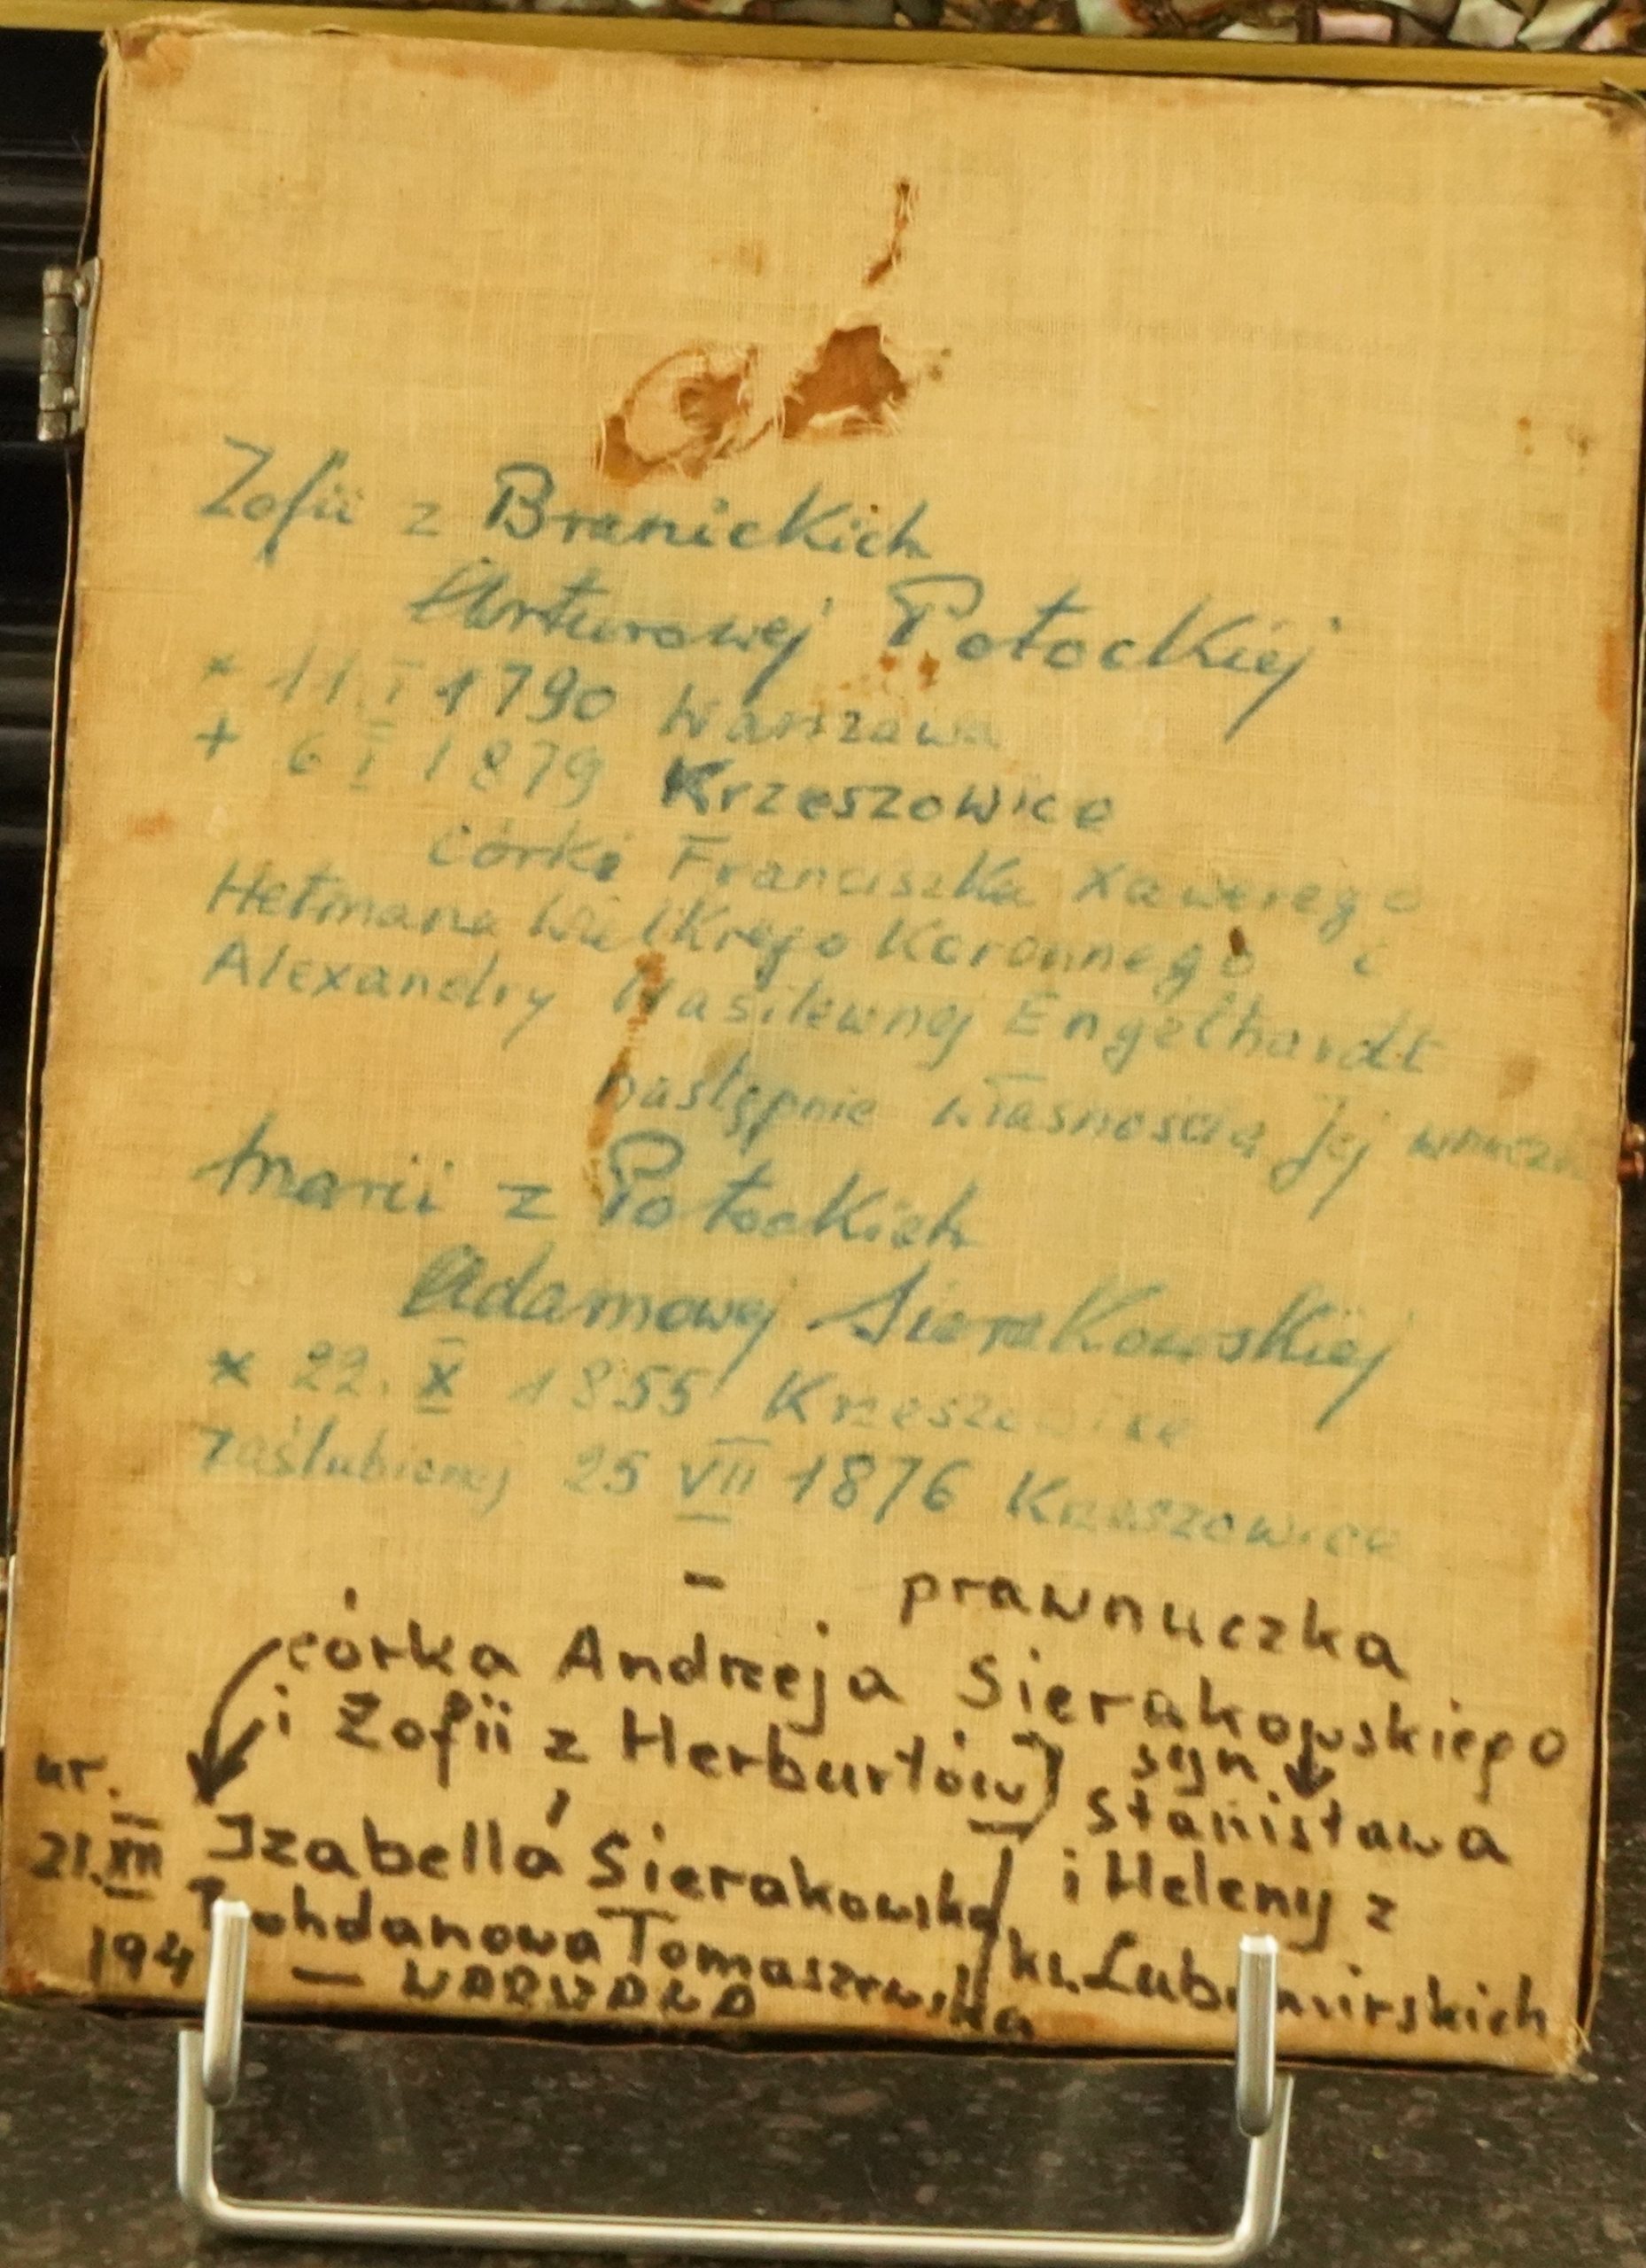 Zofii z Branickich
Arturowej Potockiej
* 11.I 1790 Warszawa
+ 6 I 1879 Krzeszowice
córki Franciszka Xawerego
Hetmana Wielkiego Koronnego i
Alexandry Wasilewnej Engelhardt
następnie własnością Jej wnuczki
Marii z Potockich
Adamowej Sierakowskiej
* 22. X 1855 Krzeszowice
zaślubionej 25 VII 1876 Krzeszowice
- prawnuczka
córka Andrzeja Sierakowskiego
i Zofii z Herburtów) syn
Stanisława
i Heleny z
ks. Lubomirskich
ur.
21.XII
194
Izabella Sierakowska
Bohdanowa Tomaszewska
- WARSZAWA